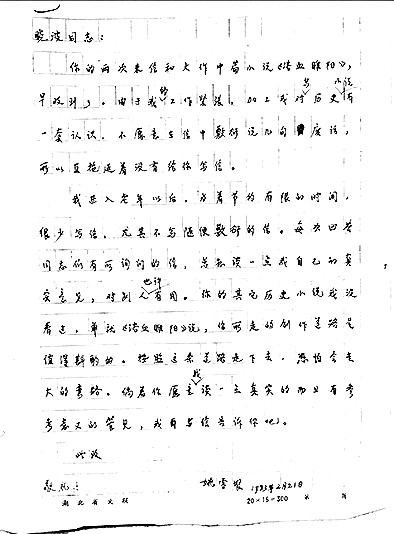 晓波同志：
你的两次来信和大作中篇小说《浴血睢阳》，
早收到了。由于我的工作紧张。加上我对历史小说有
一套认识，不愿意在信中敷衍说几句废话，
所以直拖延着没有给你写信。
我进入老年以后，为着节约有限的时间，
很少写信，尤其不写随便敷衍的信。每次回答
同志们有所询问的信，总想谈一点我自己的真
实意见，对别人也许有用。你的其它历史小说我没
看过，单就《浴血睢阳》说，你所走的创作道路是
值得斟酌的。按照这条道路走下去，恐怕会走
大的弯路。倘若你愿意我谈一点真实的而且有参
考意义的管见，我再写信告诉你吧。
此致
敬礼！
姚雪垠 1983年2月21日
湖北省文联 20×15=300 第 页